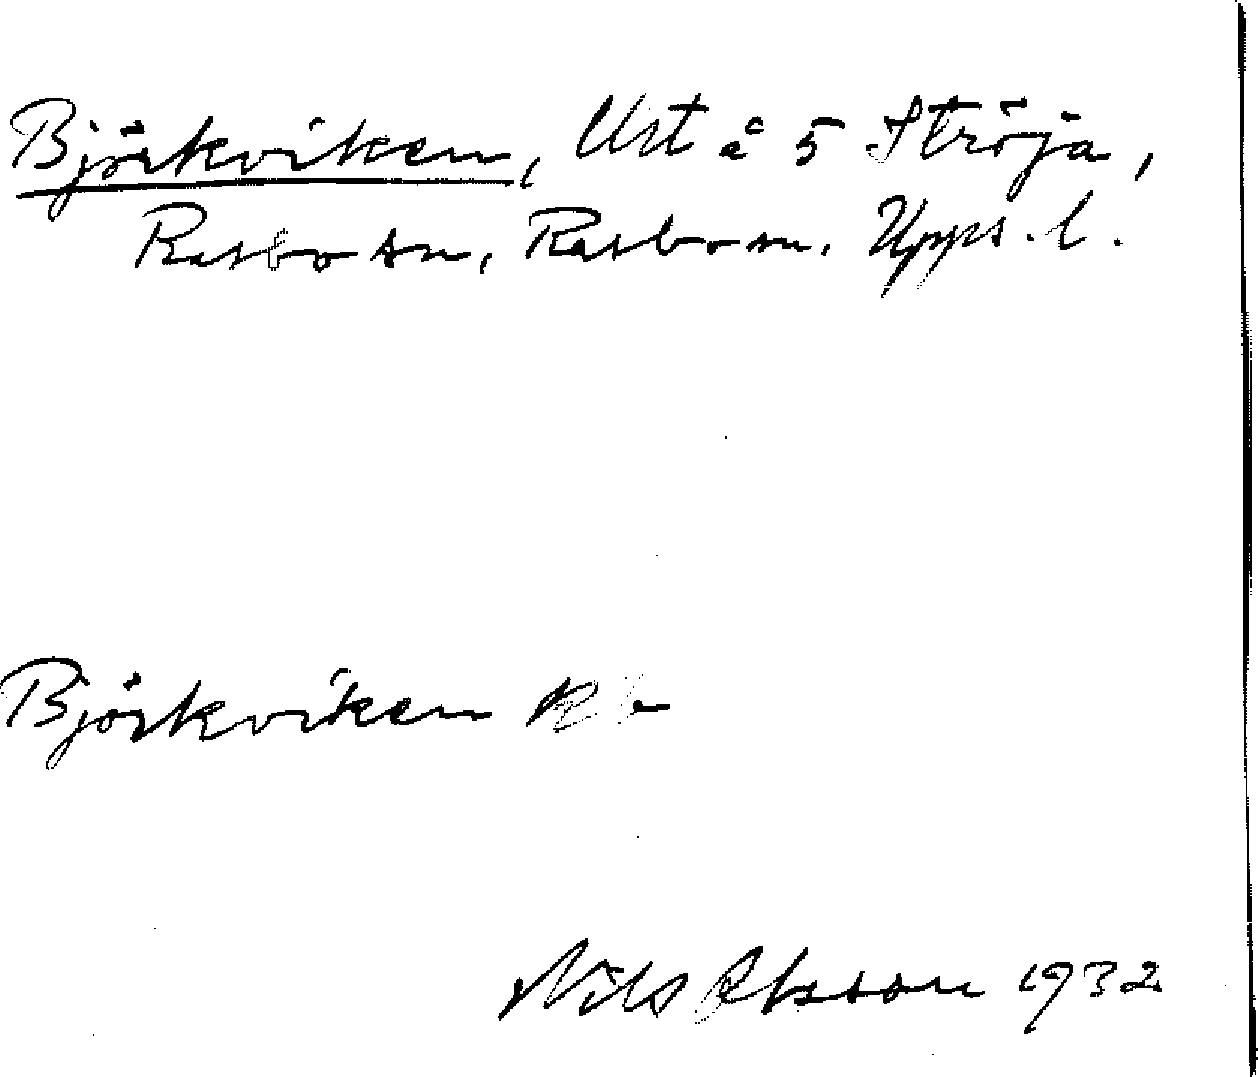 Björkviken, Urt å 5 Ströja,
Rasbo sn, Rasbo sn. Upps. l.
Björkviken Rb
Nils Olsson 1932